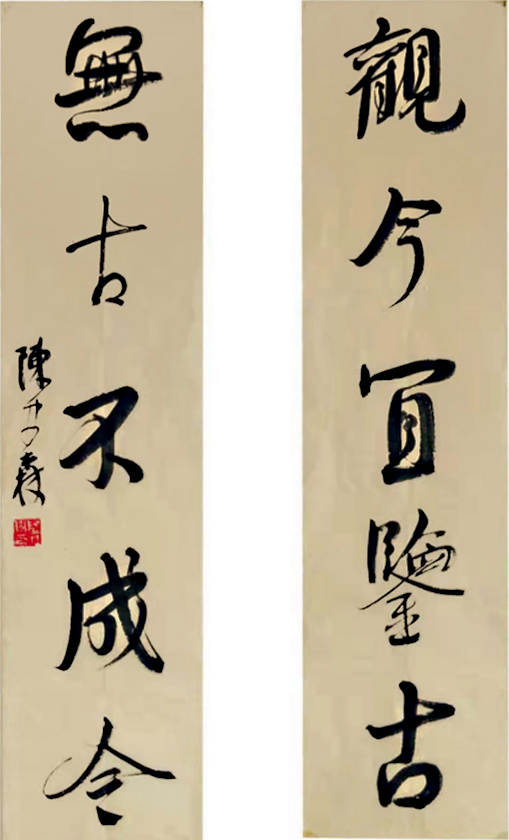 觀今宜鑒古
無古不成今
陳